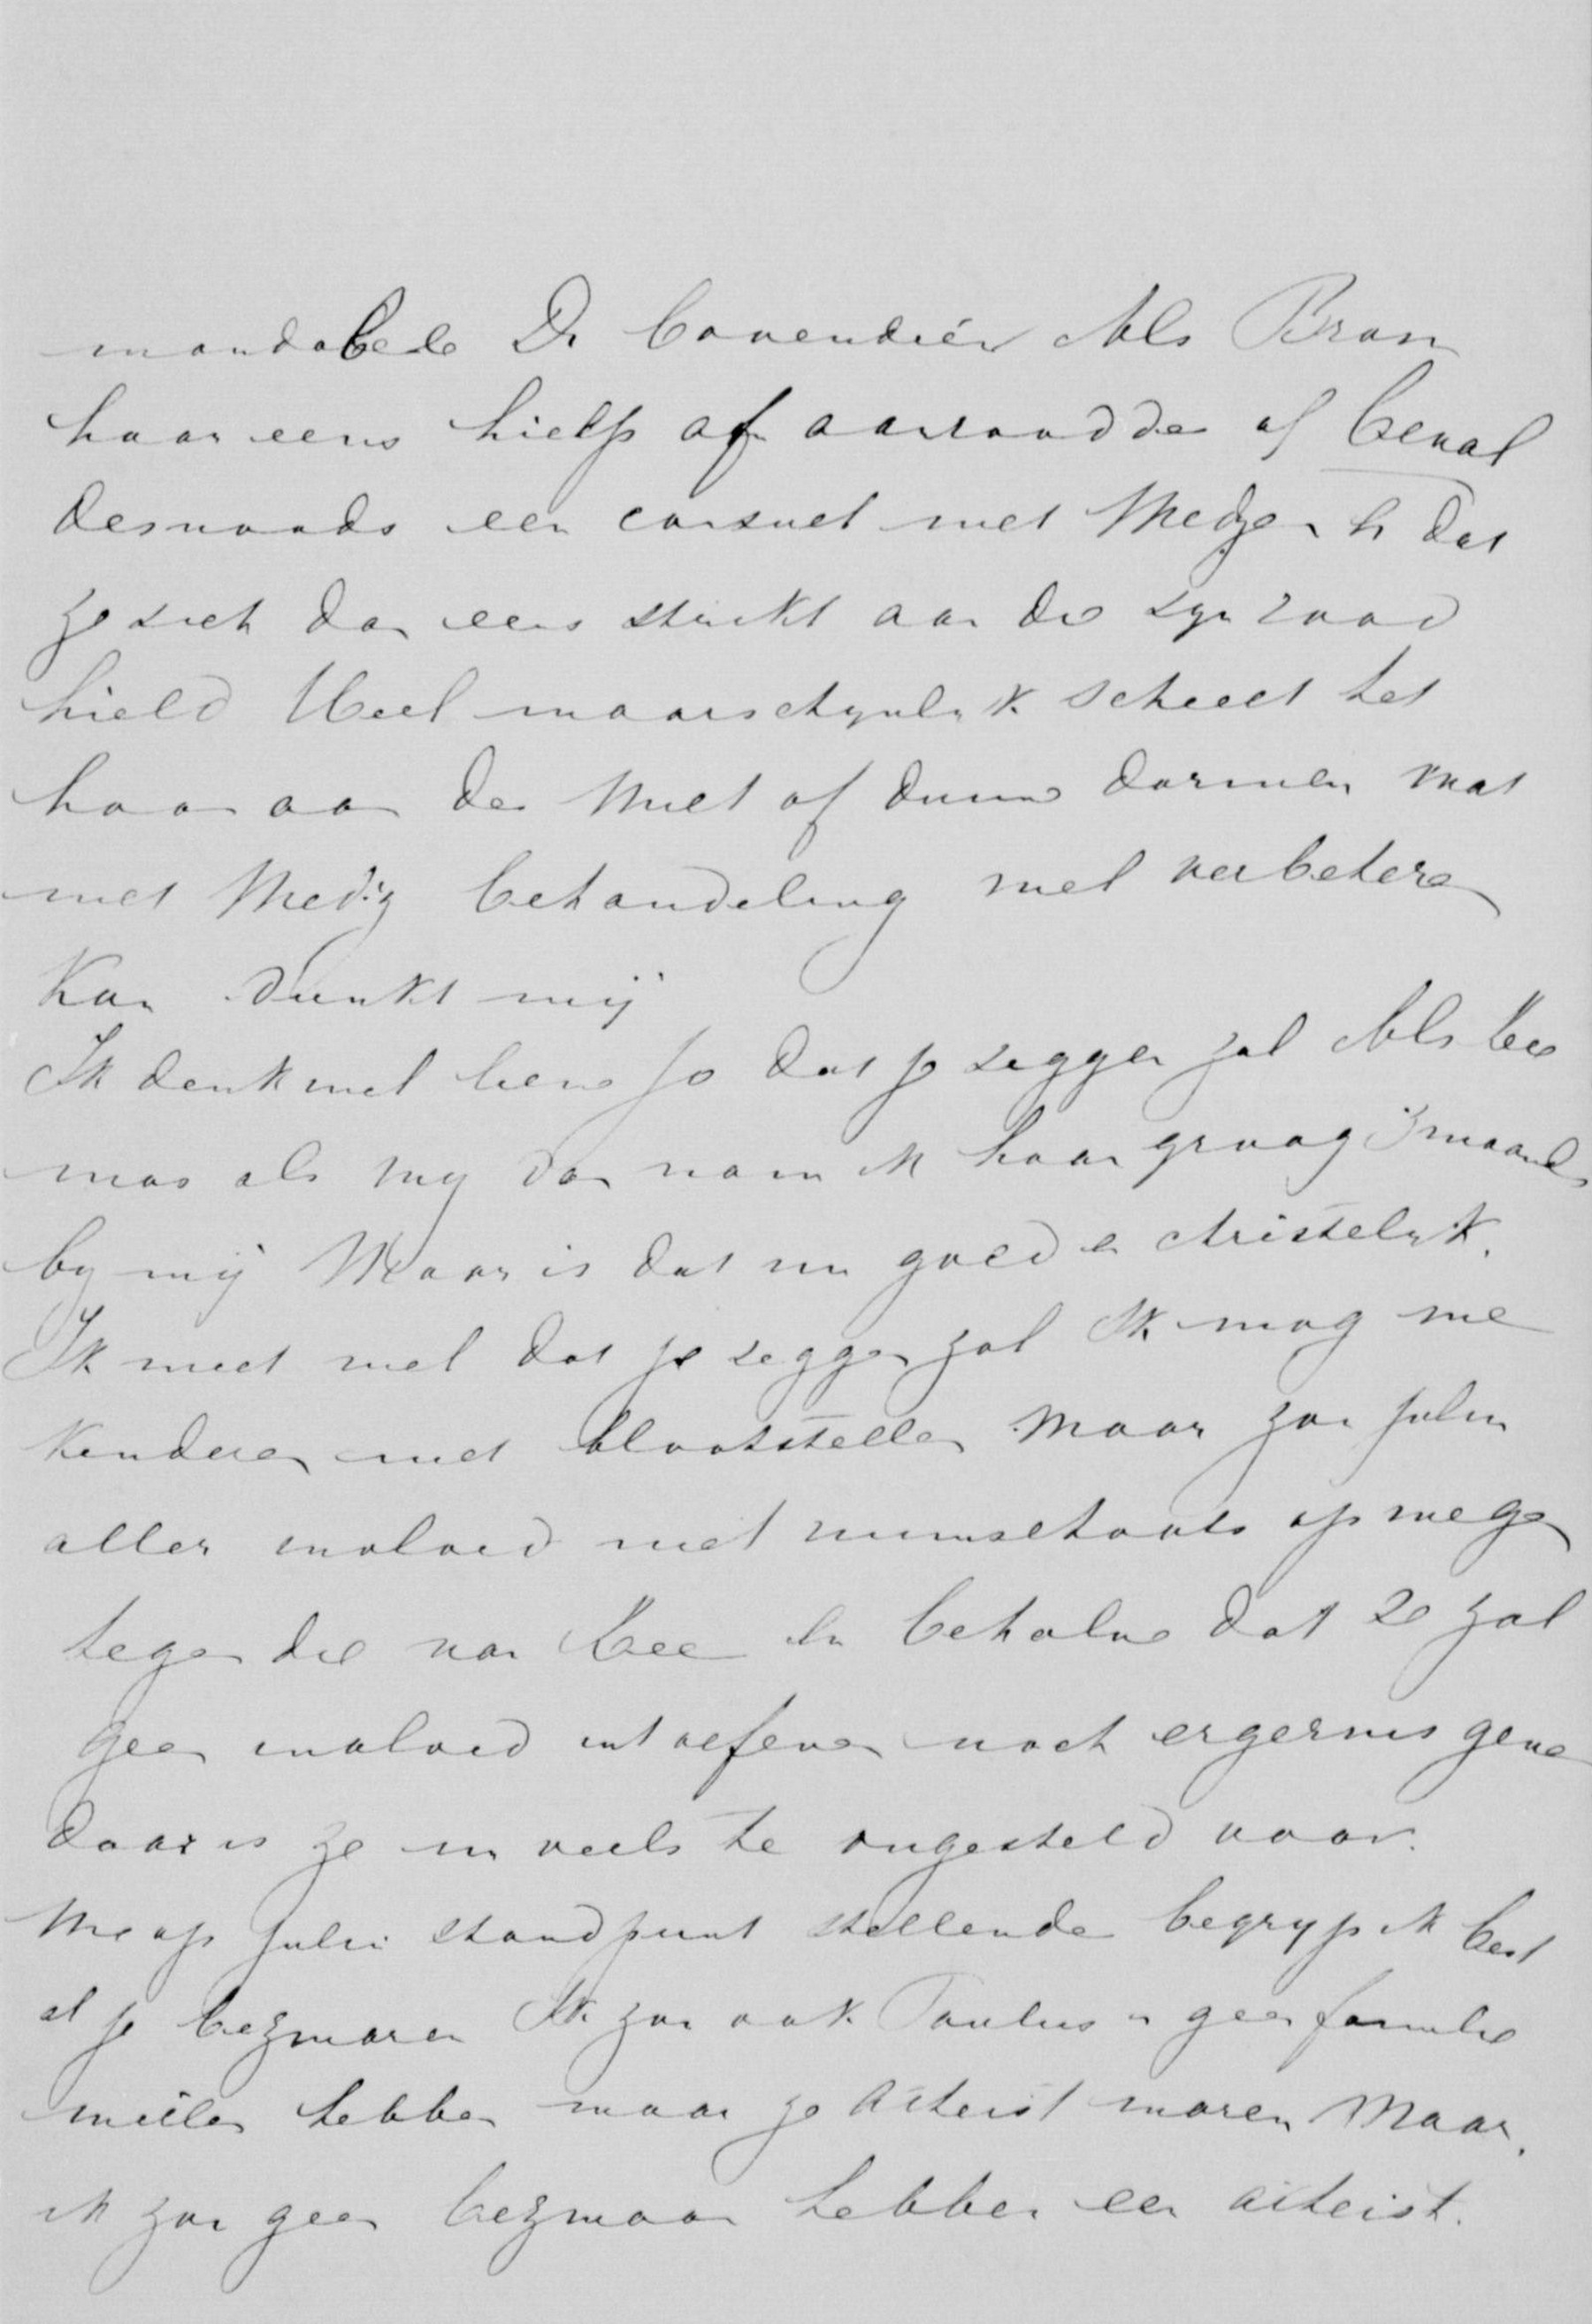 wandabele Dr Couvendrér Als Bram
haar eens hielp of aanraadde of beval
desnoods een consult met Medzer h dat
ze zich dan eens strickt aan die zyn raad
hield Heel waarschynlyk scheelt het
haar aan de Milt of dunne darmen wat
met Mediz behandeling wel verbeteren
Kan dunkt mij
Ik denk wel lieve Jo dat je zeggen zal Als Cee
was als my dan nam ik haar graag 3 maands
by mij Maar is dat nu goed en christelyk.
Ik weet wel dat je zeggen zal Ik mag me
kinderen niet blootstellen Maar zou julie
aller invloed niet ruimschoots opwegen
tegen die van Cee En behalve dat ze zal
geen invloed uitoefenen noch ergernis geven
daar is ze nu veels te ongesteld voor.
Me op julie standpunt stellende begryp ik best
al je bezwaren Ik zou ook Paulus n geen familie
willen hebben waar ze Atheist waren Maar.
ik zou geen bezwaar hebben een atheist.